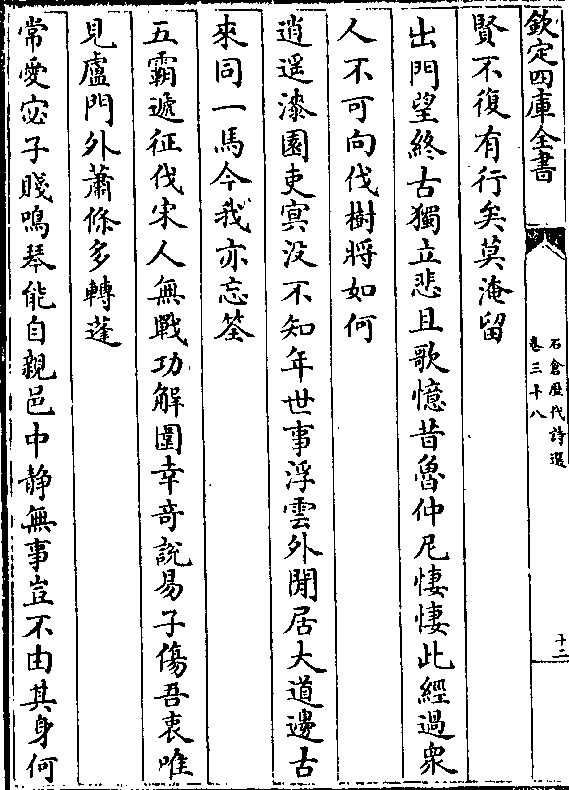 欽定四庫全書
石倉歷代詩選
卷三十八
十二
賢不復有行矣莫淹留
出門望終古獨立悲且歌憶昔魯仲尼悽悽此經過衆
人不可向伐樹將如何
逍遥漆園吏冥没不知年世事浮雲外閒居大道邊古
來同一馬今我亦忘筌
五霸遞征伐宋人無戰功解圍幸竒説易子傷吾衷唯
見盧門外蕭條多轉蓬
常愛宓子賤鳴琴能自親邑中静無事豈不由其身何